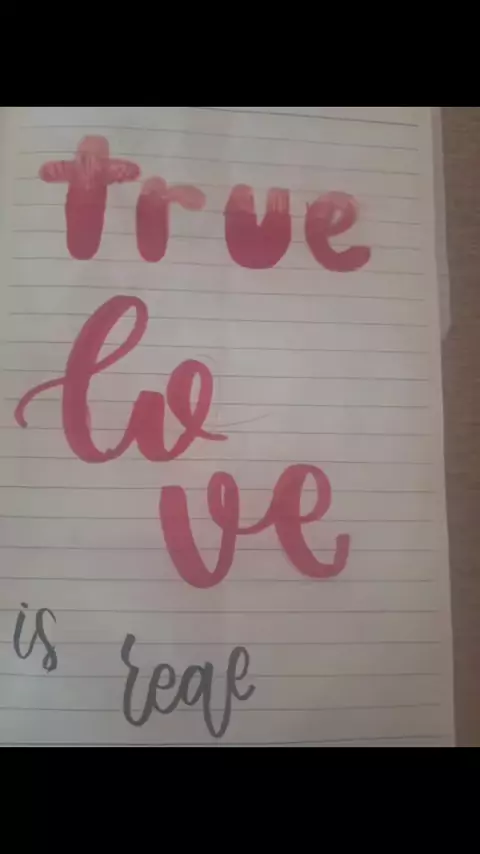 true
lo
ve
is reae